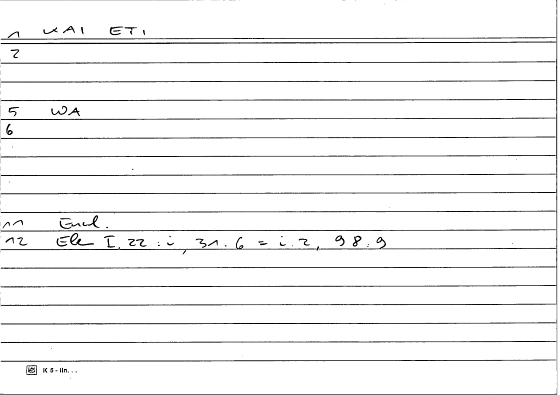 1 KAI ETI
2
5 WA
6
11 Eucl.
12 Ele I.22:i, 31.6 = i.2, 98.9
K 5 - lin...